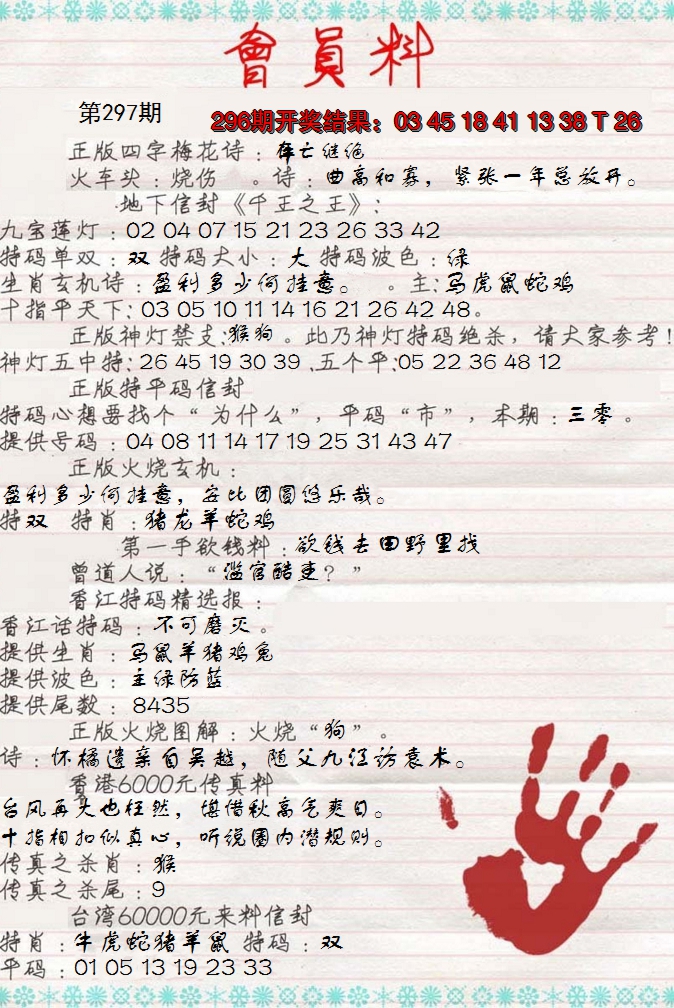 會員料
第297期
296期开奖结果：03 45 18 41 13 38 T 26
正版四字梅花诗：存亡继绝
火车头：烧伤 。诗：曲高和寡，紧张一年总放开。
地下信封《千王之王》：
九宝莲灯：02 04 07 15 21 23 26 33 42
特码单双：双 特码大小：大 特码波色：绿
生肖玄机诗：盈利多少何挂意。 。主：马虎鼠蛇鸡
十指平天下：03 05 10 11 14 16 21 26 42 48。
正版神灯禁支：猴狗 。此乃神灯特码绝杀，请大家参考！
神灯五中特：26 45 19 30 39 、五个平：05 22 36 48 12
正版特平码信封
特码心想要找个“为什么”，平码“市”，本期：三零 。
提供号码：04 08 11 14 17 19 25 31 43 47
正版火烧玄机：
盈利多少何挂意，安比团圆悠乐哉。
特双 特肖：猪龙羊蛇鸡
第一手欲钱料：欲钱去田野里找
曾道人说：“滥官酷吏？”
香江特码精选报：
香江话特码：不可磨灭。
提供生肖：马鼠羊猪鸡兔
提供波色：主绿防蓝
提供尾数：8435
正版火烧图解：火烧“狗”。
诗：怀橘遗亲自吴越，随父九江访袁术。
香港6000元传真料
台风再大也枉然，堪借秋高气爽日。
十指相扣似真心，听说圈内潜规则。
传真之杀肖：猴
传真之杀尾：9
台湾60000元来料信封
特肖：牛虎蛇猪羊鼠 特码：双
平码：01 05 13 19 23 33